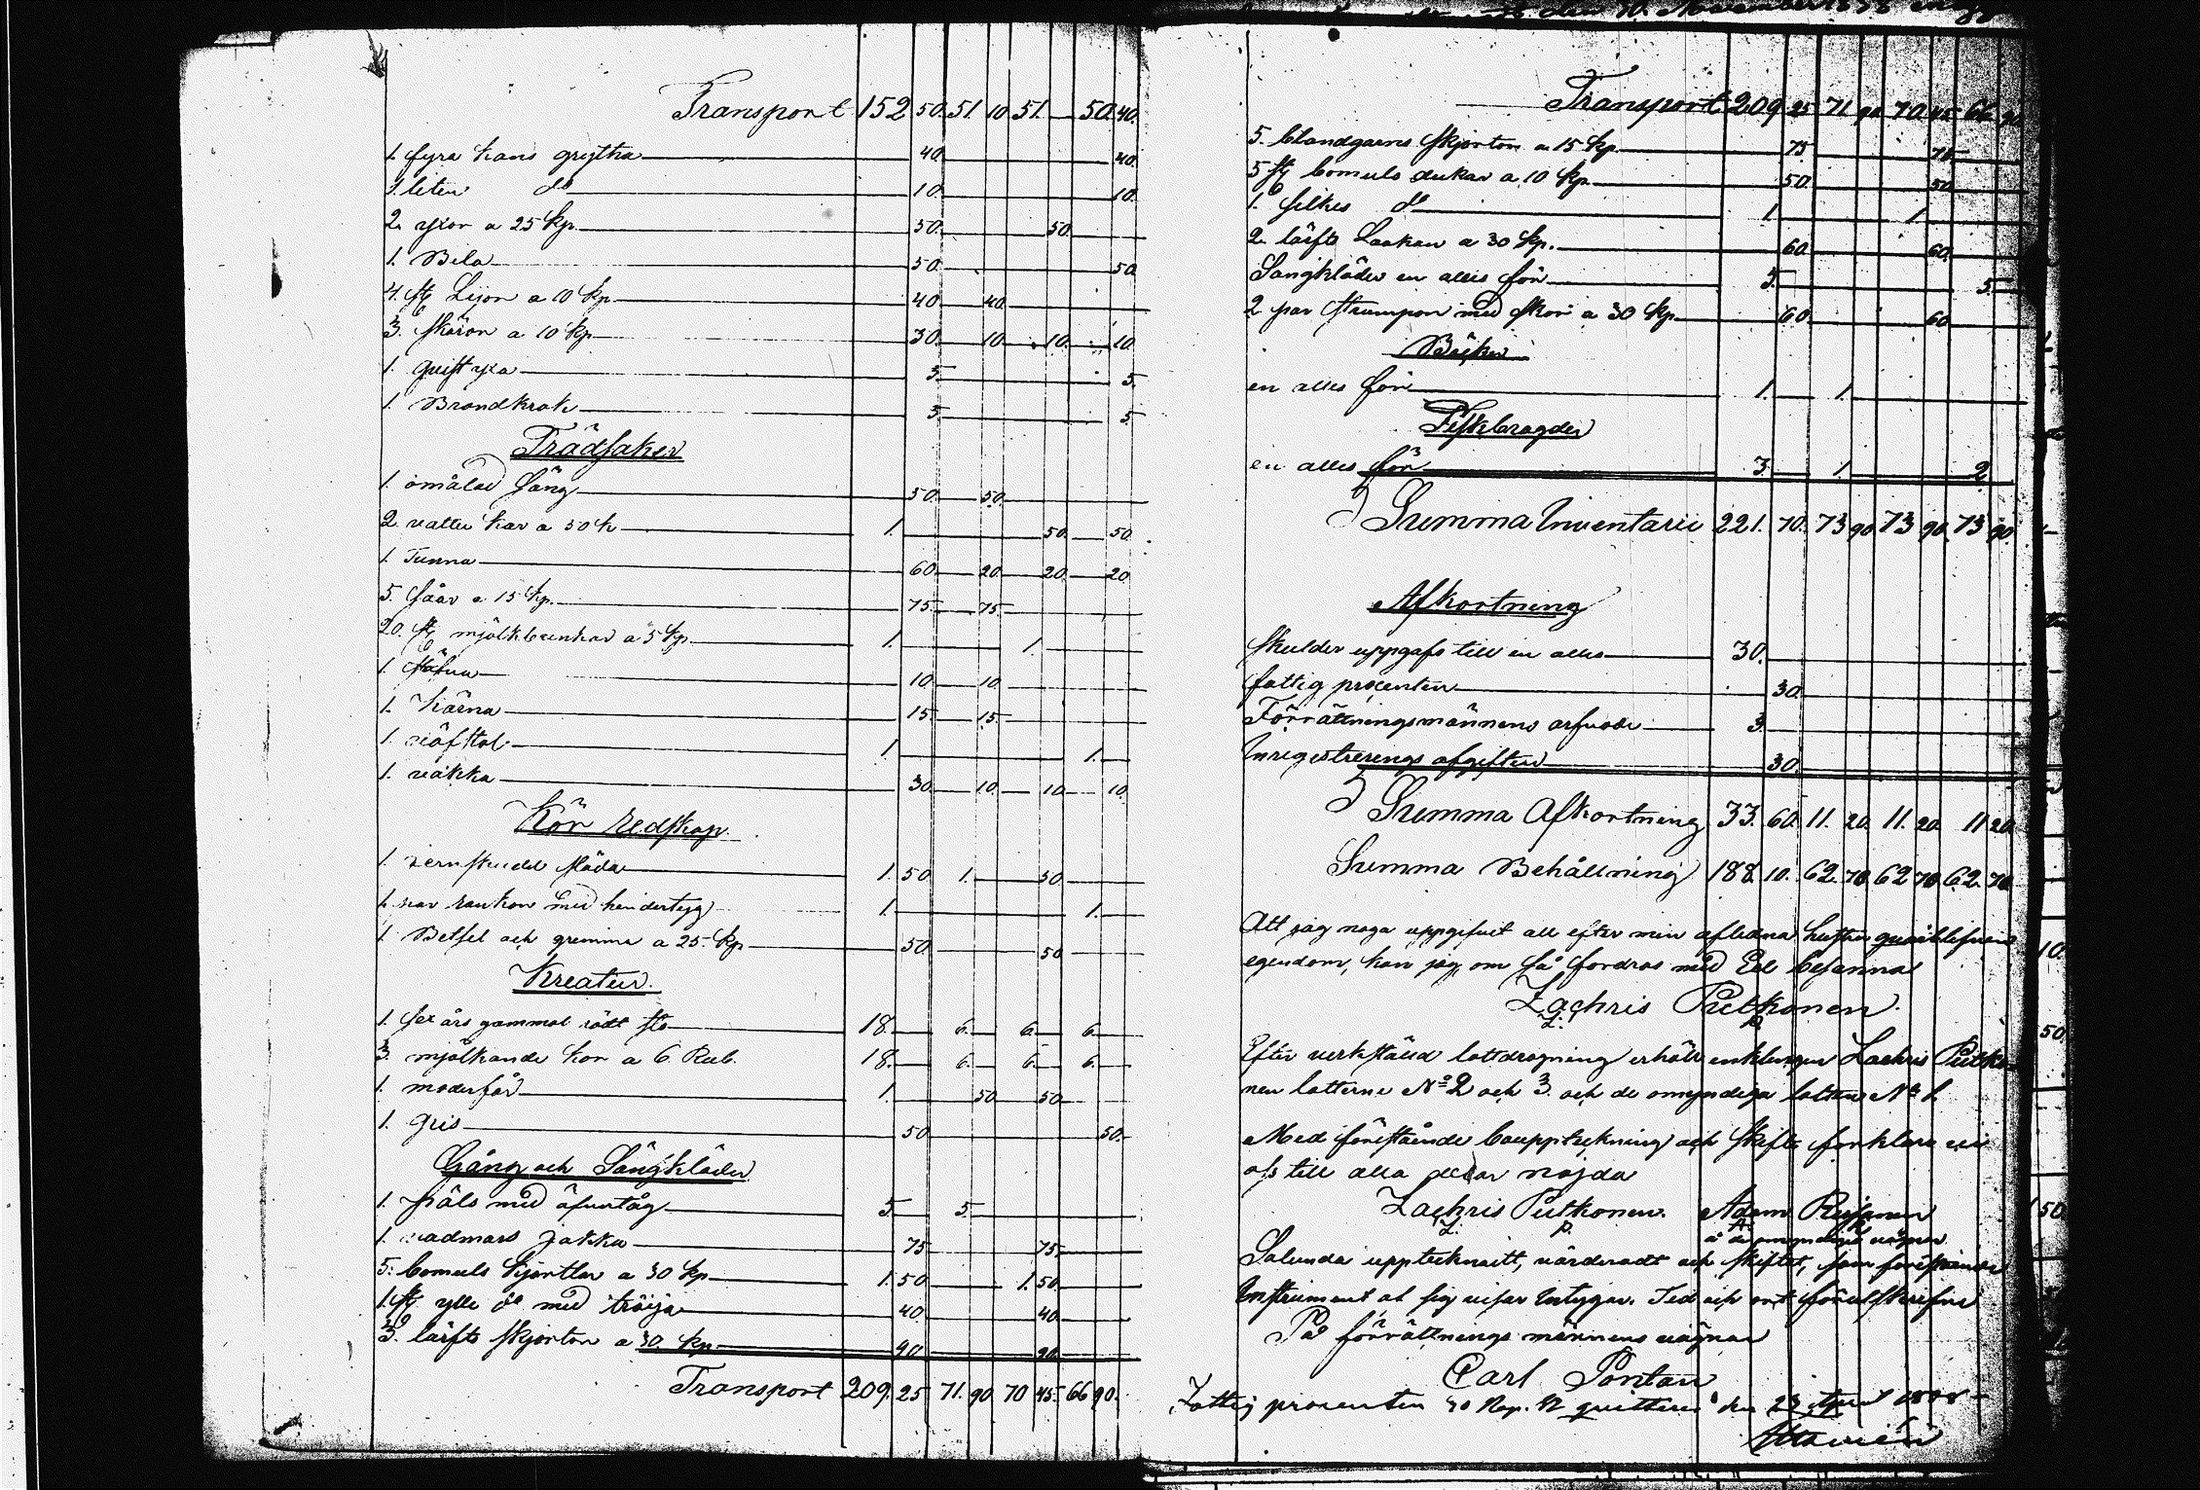 Transport 152 50. 51. 10. 51. — 50. 40.
1. fyra kans grytha 40. 40.
1. liten do 10. 10.
2. yxor a 25 kp. 50. 50.
1. Bila 50. 50.
4. st Lijor a 10 kp 40 40.
3. skäror a 10 kp 30. 10. 10. 10.
1. quist yxa 5. 5.
1. Brandkrok 5. 5.
Trädsaker
1. omålad säng 50. 50.
2. vatten kar a 50 k 1. 50. 50.
1. Tunna 60. 20. 20. 20.
5. såar a 15 kp. 75. 75.
20. st mjölkbunkar a 5 kp. 1. 1.
1. 10. 10.
1. kärna 15. 15.
1. väfstol 1. 1.
1. vakka 30. 10. 10. 10.
Kör redskap.
1. jernskodd släda 1. 50. 1. 50.
1. par rankor med hindertyg 1. 1.
1 Betsel och gremma a 25 kp 50. 50
Kreatur.
1. sex års gammal rödt sto 18. 6. 6. 6.
3. mjölkande kor a 6 Rub. 18. 6. 6. 6.
1. moderfår 1. 50 50
1. gris 50. 50.
Gång och Sängkläder
1. päls med öfvertåg 5. 5.
1 vadmars jakka 75 75.
5. bomuls kjortlar a 30 kp 1. 50 1. 50.
1. st ylle do med tröija 40. 40.
3. lärfts skjortor a 30 kp 90 90.
Transport 209. 25 71. 90. 70 45. 66 90.
Transport 209 25 71. 90 70 45 66 90
5. blandgarns skjortor a 15 kp. 75 75.
5 st bomuls dukar a 10 kp 50. 50
1. silkes do 1. 1.
2. lärfts Laakan a 30 kp. 60. 60.
Sängkläder en alles för 5. 5.
2 par strumpor med skor a 30 kp 60. 60
Böcker
en alles för 1. 1.
Fiskbragder
en alles för 3. 1. 2
Summa Inventarii 221. 70. 73 90 73 90. 73 90.
Afkortning
Skulder uppgafs till en alles 30.
fattig procenten 30.
Förrättningsmännens arfvode 3.
Inregistrerings afgiften 30.
Summa Afkortning 33. 60. 11. 20. 11. 20 11 20
Summa Behållning 188. 10. 62. 70. 62 70 62. 70
Att jag noga uppgifvit all efter min aflidna hustru quarblefven
egendom, kan jag om så fordras med Ed besanna
Zachris Putkonen.
Z. P.
Efter verkställd lottdragning erhöll enklingen Zachris Putko-
nen lotterne No 2 och 3. och de omyndiga lotten No 1.
Med förestående bouppteckning och skifte förklare vi
oss till alla delar nöjda
Zachris Putkonen. Adam
Z. P. å de omyndigas vägnar
Salunda upptecknadt, värderadt och skiftet, som förestående
Instrument at sig visar Intygar. Tid och ort förutskrefne
På förrättnings männens vägnar
Carl Pontan
Fattig procenten 30 Kop. quitteras den 23